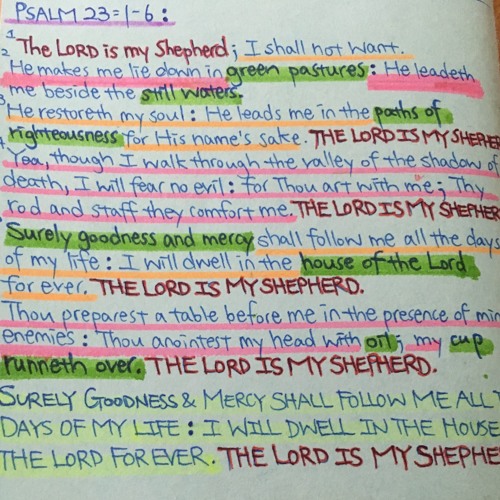 PSALM 23=1-6:
1 The LORD is my Shepherd; I shall not want.
2 He makes me lie down in green pastures: He leadeth
me beside the still waters.
3 He restoreth my soul: He leads me in the paths of
righteousness for His name's sake. THE LORD IS MY SHEPHE
4 Yea, though I walk through the valley of the shadow of
death, I will fear no evil: for Thou art with me; Thy
rod and staff they comfort me. THE LORD IS MY SHEPHER
Surely goodness and mercy shall follow me all the days
of my life: I will dwell in the house of the Lord
for ever. THE LORD IS MY SHEPHERD.
Thou preparest a table before me in the presence of min
enemies: Thou anointest my head with oil; my cup
runneth over. THE LORD IS MY SHEPHERD.
SURELY GOODNESS & MERCY SHALL FOLLOW ME ALL T
DAYS OF MY LIFE: I WILL DWELL IN THE HOUSE
THE LORD FOR EVER. THE LORD IS MY SHEPHE